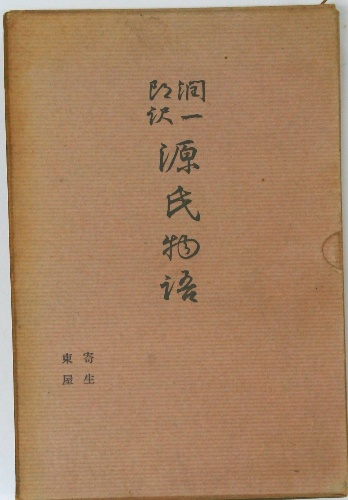 潤一
郎訳
源氏物語
寄生
東屋